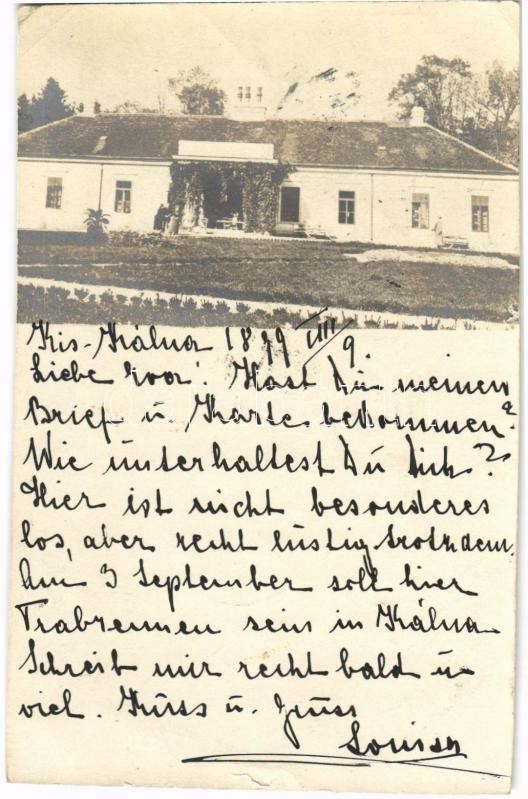 Kis-Kálna 1899 VIII/9.
Liebe ! Hast Du meinen
Brief u. Karte bekommen?
Wie unterhaltest Du Dich?
Hier ist nicht besonderes
los, aber recht lustig trotzdem.
Am 3 September soll hier
Trabrennen sein in Kálna
Schreib mir recht bald u
viel. Kuss u. Gruss